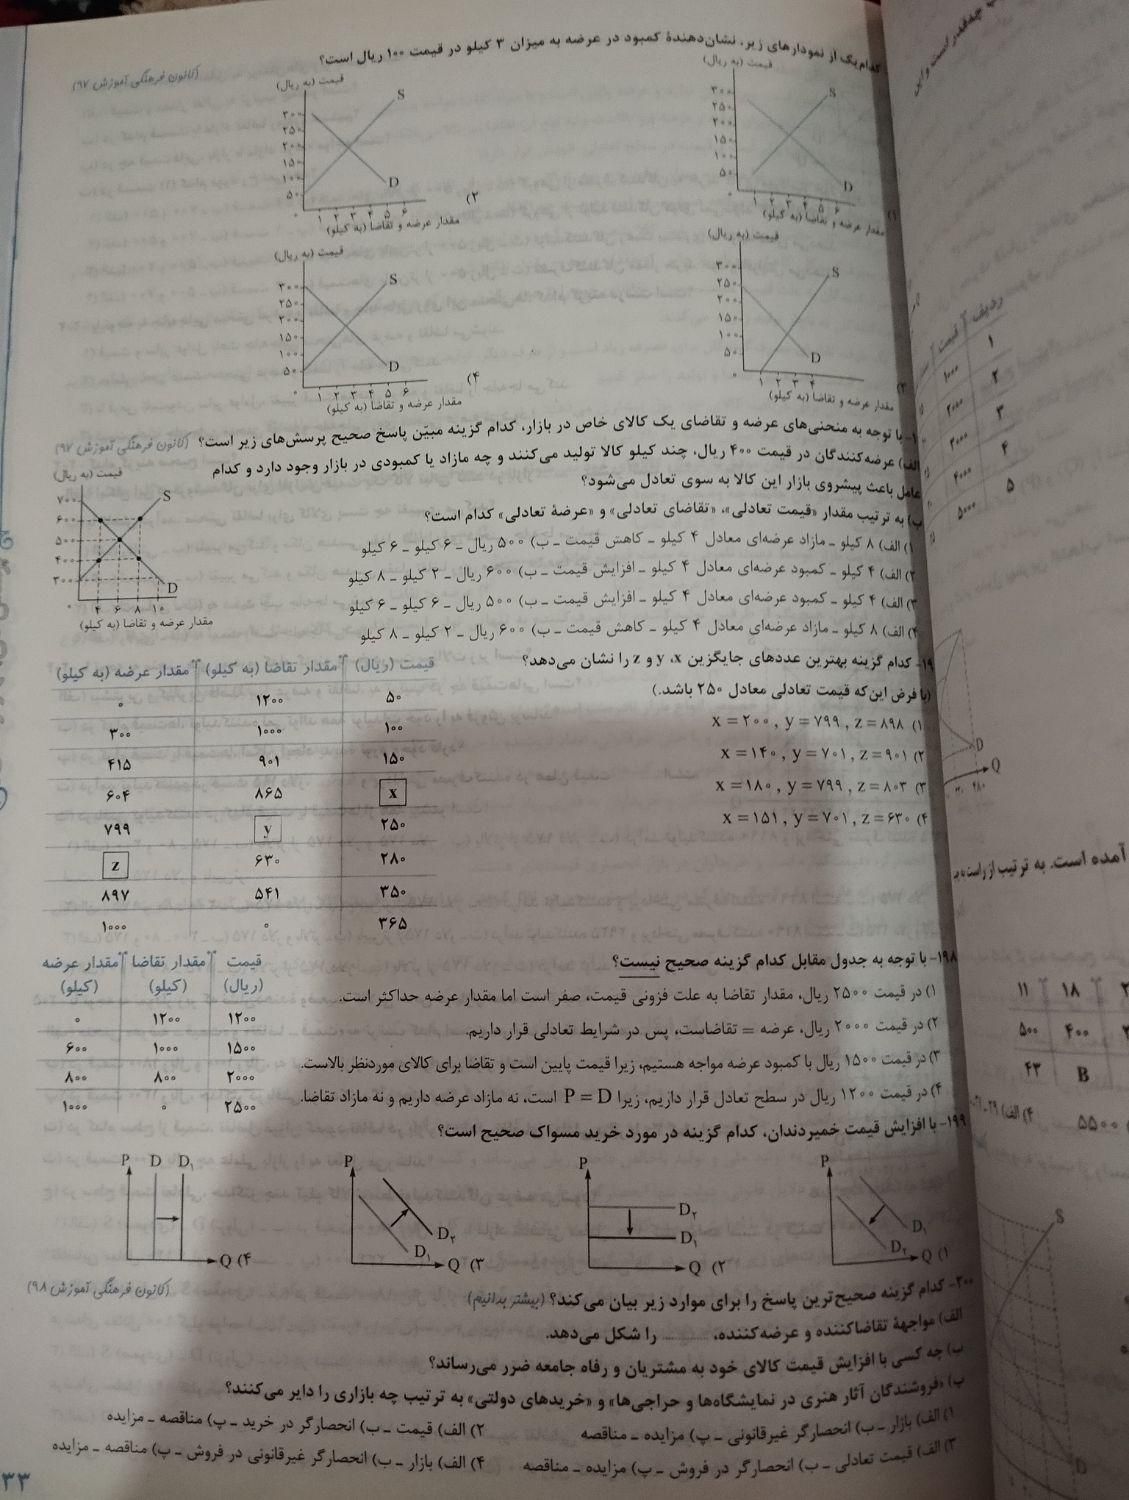 کدام‌یک از نمودارهای زیر، نشان‌دهندهٔ کمبود در عرضه به میزان ۳ کیلو در قیمت ۱۰۰ ریال است؟
(کانون فرهنگی آموزش ۹۷)
قیمت (به ریال)
۳۰۰
۲۵۰
۲۰۰
۱۵۰
۱۰۰
۵۰
۰
S
D
۱ ۲ ۳ ۴ ۵ ۶
مقدار عرضه و تقاضا (به کیلو)
۱)
قیمت (به ریال)
۳۰۰
۲۵۰
۲۰۰
۱۵۰
۱۰۰
۵۰
۰
S
D
۱ ۲ ۳ ۴ ۵ ۶
مقدار عرضه و تقاضا (به کیلو)
۲)
قیمت (به ریال)
۳۰۰
۲۵۰
۲۰۰
۱۵۰
۱۰۰
۵۰
۰
S
D
۱ ۲ ۳ ۴
مقدار عرضه و تقاضا (به کیلو)
۳)
قیمت (به ریال)
۳۰۰
۲۵۰
۲۰۰
۱۵۰
۱۰۰
۵۰
۰
S
D
۱ ۲ ۳ ۴ ۵ ۶
مقدار عرضه و تقاضا (به کیلو)
۴)
با توجه به منحنی‌های عرضه و تقاضای یک کالای خاص در بازار، کدام گزینه مبیّن پاسخ صحیح پرسش‌های زیر است؟ (کانون فرهنگی آموزش ۹۷)
الف) عرضه‌کنندگان در قیمت ۴۰۰ ریال، چند کیلو کالا تولید می‌کنند و چه مازاد یا کمبودی در بازار وجود دارد و کدام
عامل باعث پیشروی بازار این کالا به سوی تعادل می‌شود؟
ب) به ترتیب مقدار «قیمت تعادلی»، «تقاضای تعادلی» و «عرضهٔ تعادلی» کدام است؟
۱) الف) ۸ کیلو ـ مازاد عرضه‌ای معادل ۴ کیلو ـ کاهش قیمت ـ ب) ۵۰۰ ریال ـ ۶ کیلو ـ ۶ کیلو
۲) الف) ۴ کیلو ـ کمبود عرضه‌ای معادل ۴ کیلو ـ افزایش قیمت ـ ب) ۶۰۰ ریال ـ ۲ کیلو ـ ۸ کیلو
۳) الف) ۴ کیلو ـ کمبود عرضه‌ای معادل ۴ کیلو ـ افزایش قیمت ـ ب) ۵۰۰ ریال ـ ۶ کیلو ـ ۶ کیلو
۴) الف) ۸ کیلو ـ مازاد عرضه‌ای معادل ۴ کیلو ـ کاهش قیمت ـ ب) ۶۰۰ ریال ـ ۲ کیلو ـ ۸ کیلو
قیمت (به ریال)
۷۰۰
۶۰۰
۵۰۰
۴۰۰
۳۰۰
۰
S
D
۴ ۶ ۸ ۱۰
مقدار عرضه و تقاضا (به کیلو)
کدام گزینه بهترین عددهای جایگزین x، y و z را نشان می‌دهد؟
(با فرض این‌که قیمت تعادلی معادل ۲۵۰ باشد.)
۱) x = ۲۰۰ , y = ۷۹۹ , z = ۸۹۸
۲) x = ۱۴۰ , y = ۷۰۱ , z = ۹۰۱
۳) x = ۱۸۰ , y = ۷۹۹ , z = ۸۰۳
۴) x = ۱۵۱ , y = ۷۰۱ , z = ۶۳۰
قیمت (ریال) مقدار تقاضا (به کیلو) مقدار عرضه (به کیلو)
۵۰ ۱۲۰۰ ۰
۱۰۰ ۱۰۰۰ ۳۰۰
۱۵۰ ۹۰۱ ۴۱۵
x ۸۶۵ ۶۰۴
۲۵۰ y ۷۹۹
۲۸۰ ۶۳۰ z
۳۵۰ ۵۴۱ ۸۹۷
۳۶۵ ۰ ۱۰۰۰
۱۹۸- با توجه به جدول مقابل کدام گزینه صحیح نیست؟
۱) در قیمت ۲۵۰۰ ریال، مقدار تقاضا به علت فزونی قیمت، صفر است اما مقدار عرضه حداکثر است.
۲) در قیمت ۲۰۰۰ ریال، عرضه = تقاضاست، پس در شرایط تعادلی قرار داریم.
۳) در قیمت ۱۵۰۰ ریال با کمبود عرضه مواجه هستیم، زیرا قیمت پایین است و تقاضا برای کالای موردنظر بالاست.
۴) در قیمت ۱۲۰۰ ریال در سطح تعادل قرار داریم، زیرا P = D است، نه مازاد عرضه داریم و نه مازاد تقاضا.
قیمت (ریال) مقدار تقاضا (کیلو) مقدار عرضه (کیلو)
۱۲۰۰ ۱۲۰۰ ۰
۱۵۰۰ ۱۰۰۰ ۶۰۰
۲۰۰۰ ۸۰۰ ۸۰۰
۲۵۰۰ ۰ ۱۰۰۰
۱۹۹- با افزایش قیمت خمیردندان، کدام گزینه در مورد خرید مسواک صحیح است؟
P D₁ D₂ Q ۱)
P D₂ D₁ Q ۲)
P D₂ D₁ Q ۳)
P D D₁ Q ۴)
۲۰۰- کدام گزینه صحیح‌ترین پاسخ را برای موارد زیر بیان می‌کند؟ (بیشتر بدانیم)
(کانون فرهنگی آموزش ۹۸)
الف) مواجههٔ تقاضاکننده و عرضه‌کننده، .......... را شکل می‌دهد.
ب) چه کسی با افزایش قیمت کالای خود به مشتریان و رفاه جامعه ضرر می‌رساند؟
پ) «فروشندگان آثار هنری در نمایشگاه‌ها و حراجی‌ها» و «خریدهای دولتی» به ترتیب چه بازاری را دایر می‌کنند؟
۱) الف) بازار ـ ب) انحصارگر غیرقانونی ـ پ) مزایده ـ مناقصه
۲) الف) قیمت ـ ب) انحصارگر در خرید ـ پ) مناقصه ـ مزایده
۳) الف) قیمت تعادلی ـ ب) انحصارگر در فروش ـ پ) مزایده ـ مناقصه
۴) الف) بازار ـ ب) انحصارگر غیرقانونی در فروش ـ پ) مناقصه ـ مزایده
۳۳
ردیف قیمت
۱ ۱۰۰۰
۲ ۲۰۰۰
۳ ۳۰۰۰
۴ ۴۰۰۰
۵ ۵۰۰۰
D
Q
آمده است. به ترتیب از راست به
۱۸ ۱۱
۴۰۰ ۵۰۰
B ۴۳
۵۵۰۰
S
D